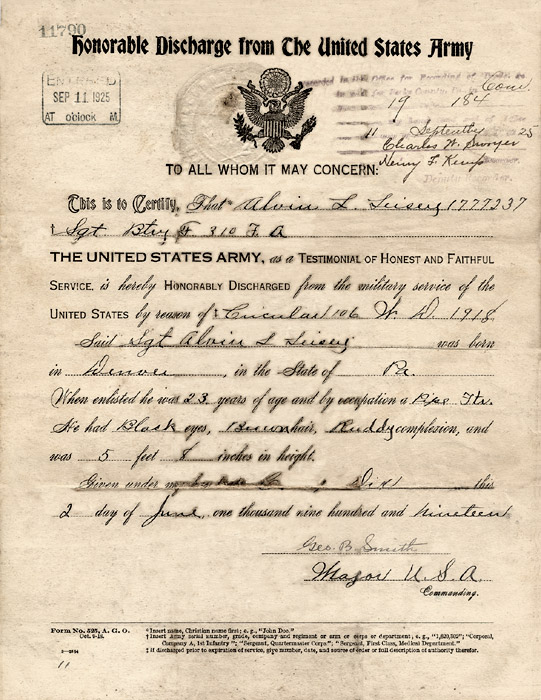 11790
Honorable Discharge from The United States Army
ENTERED
SEP 11 1925
AT o'clock M.
Com.
19 184
11 September 25
Charles W. Sawyer
Henry F. Kemp
TO ALL WHOM IT MAY CONCERN:
This is to Certify, That Alvin L. 1777237
Sgt Btry F 310 F A
THE UNITED STATES ARMY, as a TESTIMONIAL OF HONEST AND FAITHFUL
SERVICE, is hereby HONORABLY DISCHARGED from the military service of the
UNITED STATES by reason of Circular 106 W. D. 1918
Said Sgt Alvin L was born
in Denver, in the State of Pa.
When enlisted he was 23 years of age and by occupation a Pipe Ftr.
He had Black eyes, Brown hair, Ruddy complexion, and
was 5 feet 8 inches in height.
Given under my hand this
2 day of June, one thousand nine hundred and nineteen
Geo. B. Smith
Major U.S.A.
Commanding.
Form No. 525, A. G. O.
Oct. 9-18.
*Insert name, Christian name first; e. g., "John Doe."
†Insert Army serial number, grade, company and regiment or arm or corps or department; e. g., "1,620,302"; "Corporal,
Company A, 1st Infantry"; "Sergeant, Quartermaster Corps"; "Sergeant, First Class, Medical Department."
‡If discharged prior to expiration of service, give number, date, and source of order or full description of authority therefor.
11